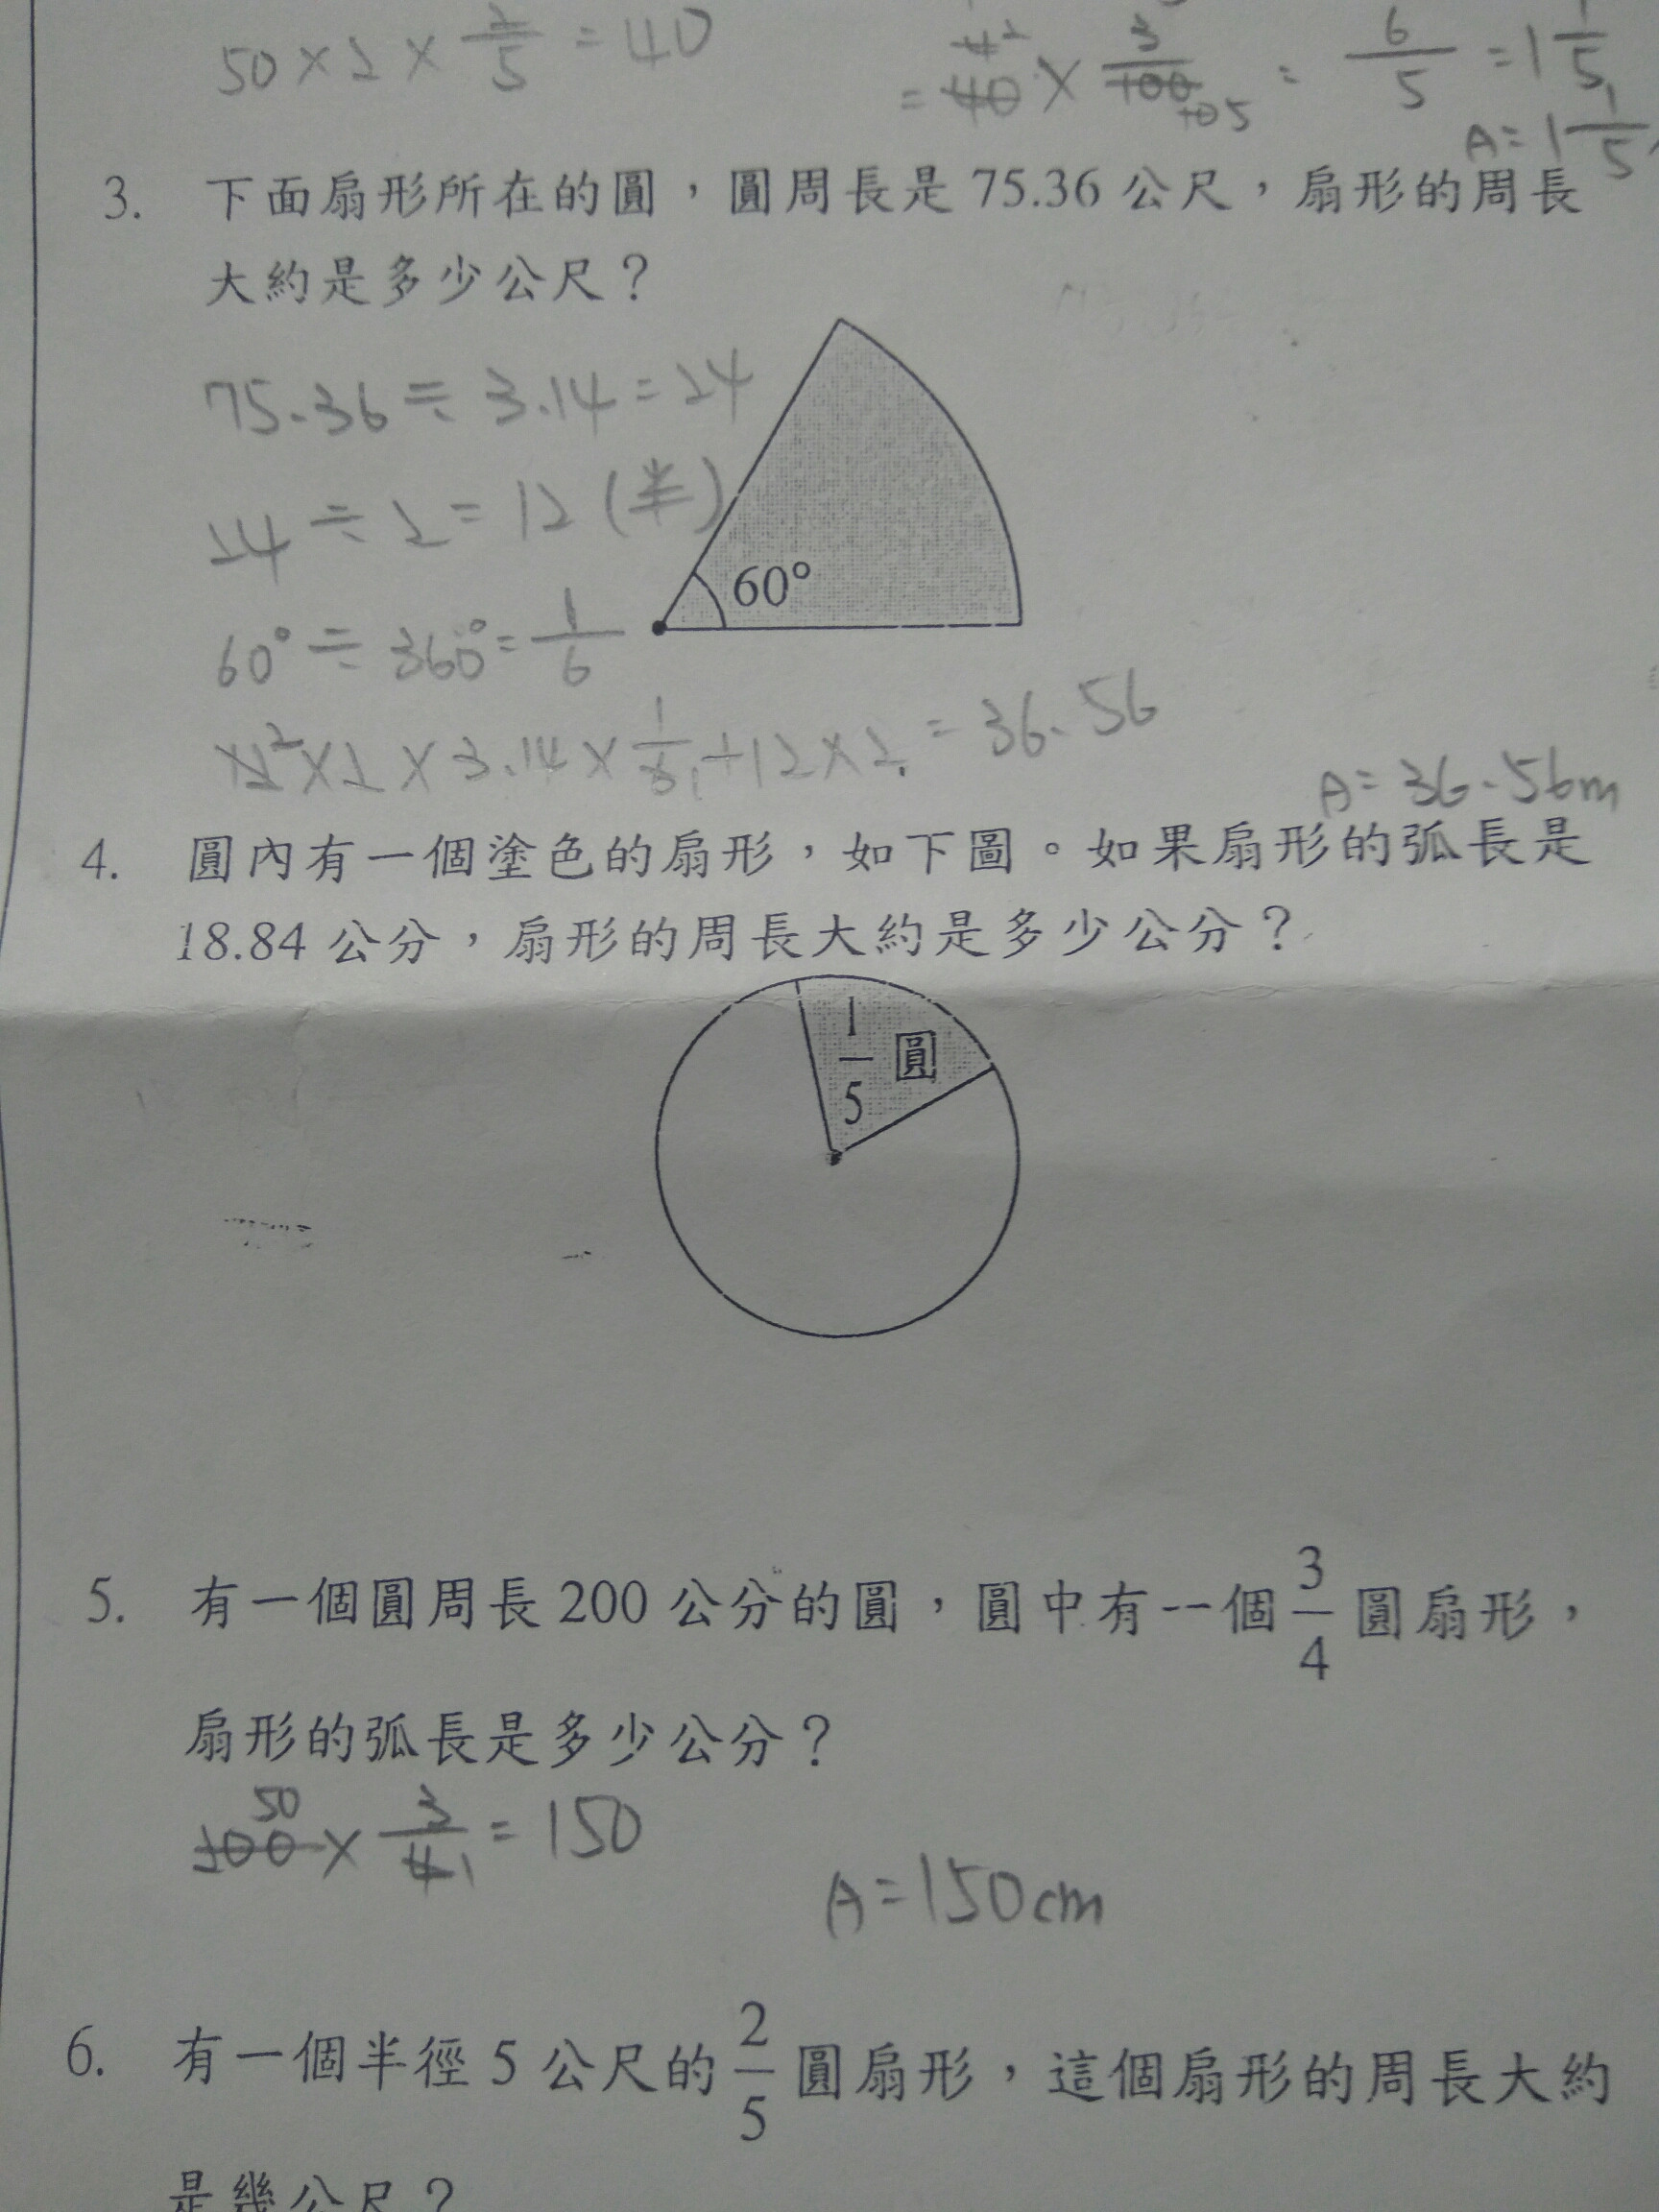 50×2×2/5=40
=40×3/100=6/5=1 1/5
A=1 1/5
3. 下面扇形所在的圓，圓周長是75.36公尺，扇形的周長
大約是多少公尺？
75.36÷3.14=24
24÷2=12(半)
60°
60°÷360°=1/6
12×2×3.14×1/6+12×2=36.56
A=36.56m
4. 圓內有一個塗色的扇形，如下圖。如果扇形的弧長是
18.84公分，扇形的周長大約是多少公分？
1/5圓
5. 有一個圓周長200公分的圓，圓中有一個3/4圓扇形，
扇形的弧長是多少公分？
50
200×3/4=150
A=150cm
6. 有一個半徑5公尺的2/5圓扇形，這個扇形的周長大約
是幾公尺？